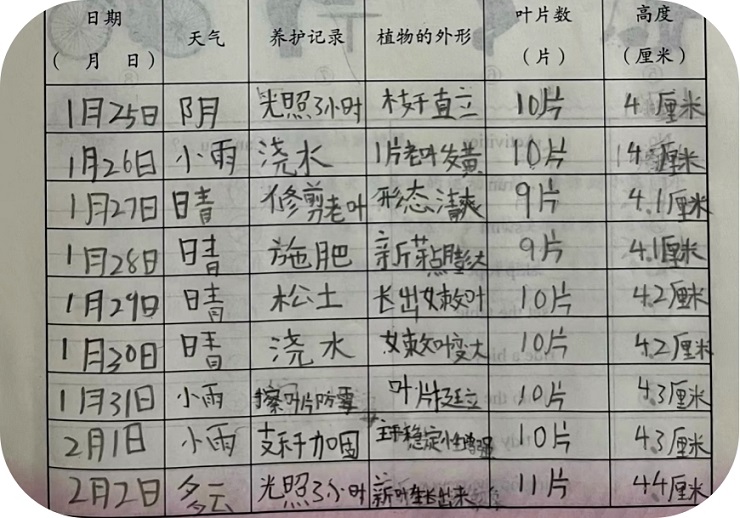 日期 天气 养护记录 植物的外形 叶片数 高度
( 月 日) (片) (厘米)
1月25日 阴 光照3小时 枝干直立 10片 4厘米
1月26日 小雨 浇水 1片老叶发黄 10片 4厘米
1月27日 晴 修剪老叶 形态清爽 9片 4.1厘米
1月28日 晴 施肥 新芽点膨大 9片 4.1厘米
1月29日 晴 松土 长出嫩叶 10片 4.2厘米
1月30日 晴 浇水 嫩叶变大 10片 4.2厘米
1月31日 小雨 擦叶片防霉 叶片挺立 10片 4.3厘米
2月1日 小雨 支杆加固 稳定性增强 10片 4.3厘米
2月2日 多云 光照3小时 新叶生长出来 11片 4.4厘米